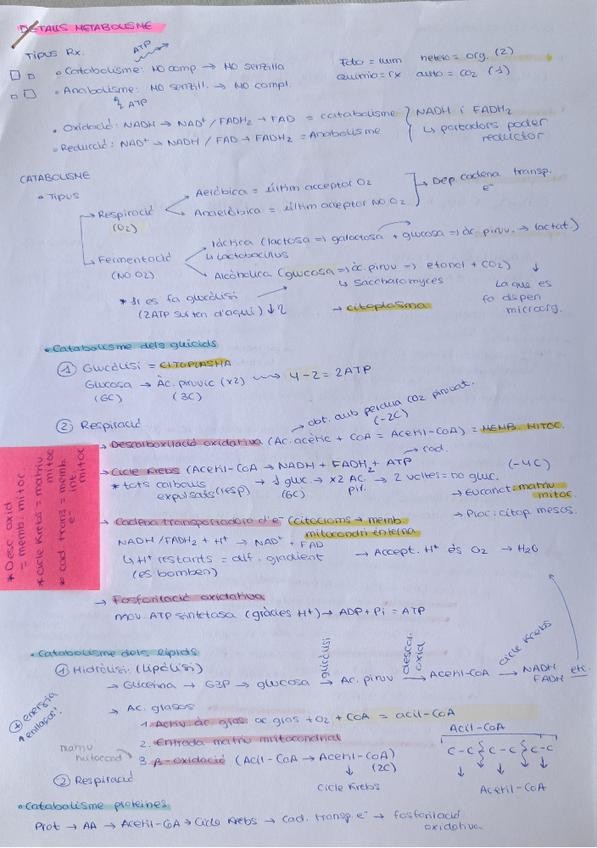 DETALLS METABOLISME
Tipus Rx.
ATP
• Catabolisme: NO comp → NO senzilla
• Anabolisme: NO senzill. → NO compl.
ATP
Foto = llum hetero = org. (2)
Quimio = rx auto = CO2 (1)
• Oxidació: NADH → NAD+ / FADH2 → FAD = catabolisme
• Reducció: NAD+ → NADH / FAD → FADH2 = Anabolisme
NADH i FADH2
↳ portadors poder reductor
CATABOLISME
• Tipus
→ Respiració
(O2)
Aeròbica = últim acceptor O2
Anaeròbica = últim acceptor NO O2
→ Dep cadena transp. e-
→ Fermentació
(NO O2)
Làctica (lactosa => galactosa + glucosa => àc. piruv. → lactat.)
↳ Lactobacillus
Alcohòlica (glucosa => àc piruv => etanol + CO2)
↳ Saccharomyces
La que es fa depèn microorg.
* Si es fa glucòlisi
(2ATP surten d'aquí)
→ citoplasma
• Catabolisme dels glúcids
① Glucòlisi = CITOPLASMA
Glucosa → Àc. pirúvic (x2) 4 - 2 = 2 ATP
(6C) (3C)
② Respiració
→ obt. amb pèrdua CO2 piruvat.
(-2C)
→ Descarboxilació oxidativa (Ac. acètic + CoA = Acetil-CoA) = MEMB. MITOC.
→ Cicle Krebs (Acetil-CoA → NADH + FADH2 + ATP
→ rod.
(-4C)
* tots carbonis expulsats (resp) → 1 gluc. → x2 Àc. pir. → 2 voltes = no gluc.
(6C)
→ Eucariot: matriu mitoc.
→ Proc: citop mesos.
→ Cadena transportadora d'e- (citocroms → memb mitocondri interna
NADH/FADH2 + H+ → NAD+ + FAD
↳ H+ restants = dif. gradient
(es bomben)
→ Accept. H+ és O2 → H2O
→ Fosforilació oxidativa
mov. ATP sintetasa (gràcies H+) → ADP + Pi = ATP
* Desc oxid = memb. mitoc
* Cicle Krebs = matriu mitoc
* cad. trans = memb. e- int mitoc
• Catabolisme dels lípids
① Hidròlisi (Lipòlisi)
→ Glicerina → G3P → glucosa → Àc. piruv → Acetil-CoA → NADH FADH etc.
glucòlisi
descar. oxid
cicle Krebs
→ Àc. grassos
+ energia
↑ enllaços!
1. Activ àc gras: ac gras + O2 + CoA = acil-CoA
2. Entrada matriu mitocondrial
matriu mitocond
3. β-oxidació (Acil-CoA → Acetil-CoA)
(2C)
↓
Cicle Krebs
Acil-CoA
C-C C-C C-C
Acetil-CoA
② Respiració
• Catabolisme proteïnes
Prot → AA → Acetil-CoA → Cicle Krebs → Cad. transp. e- → fosforilació oxidativa